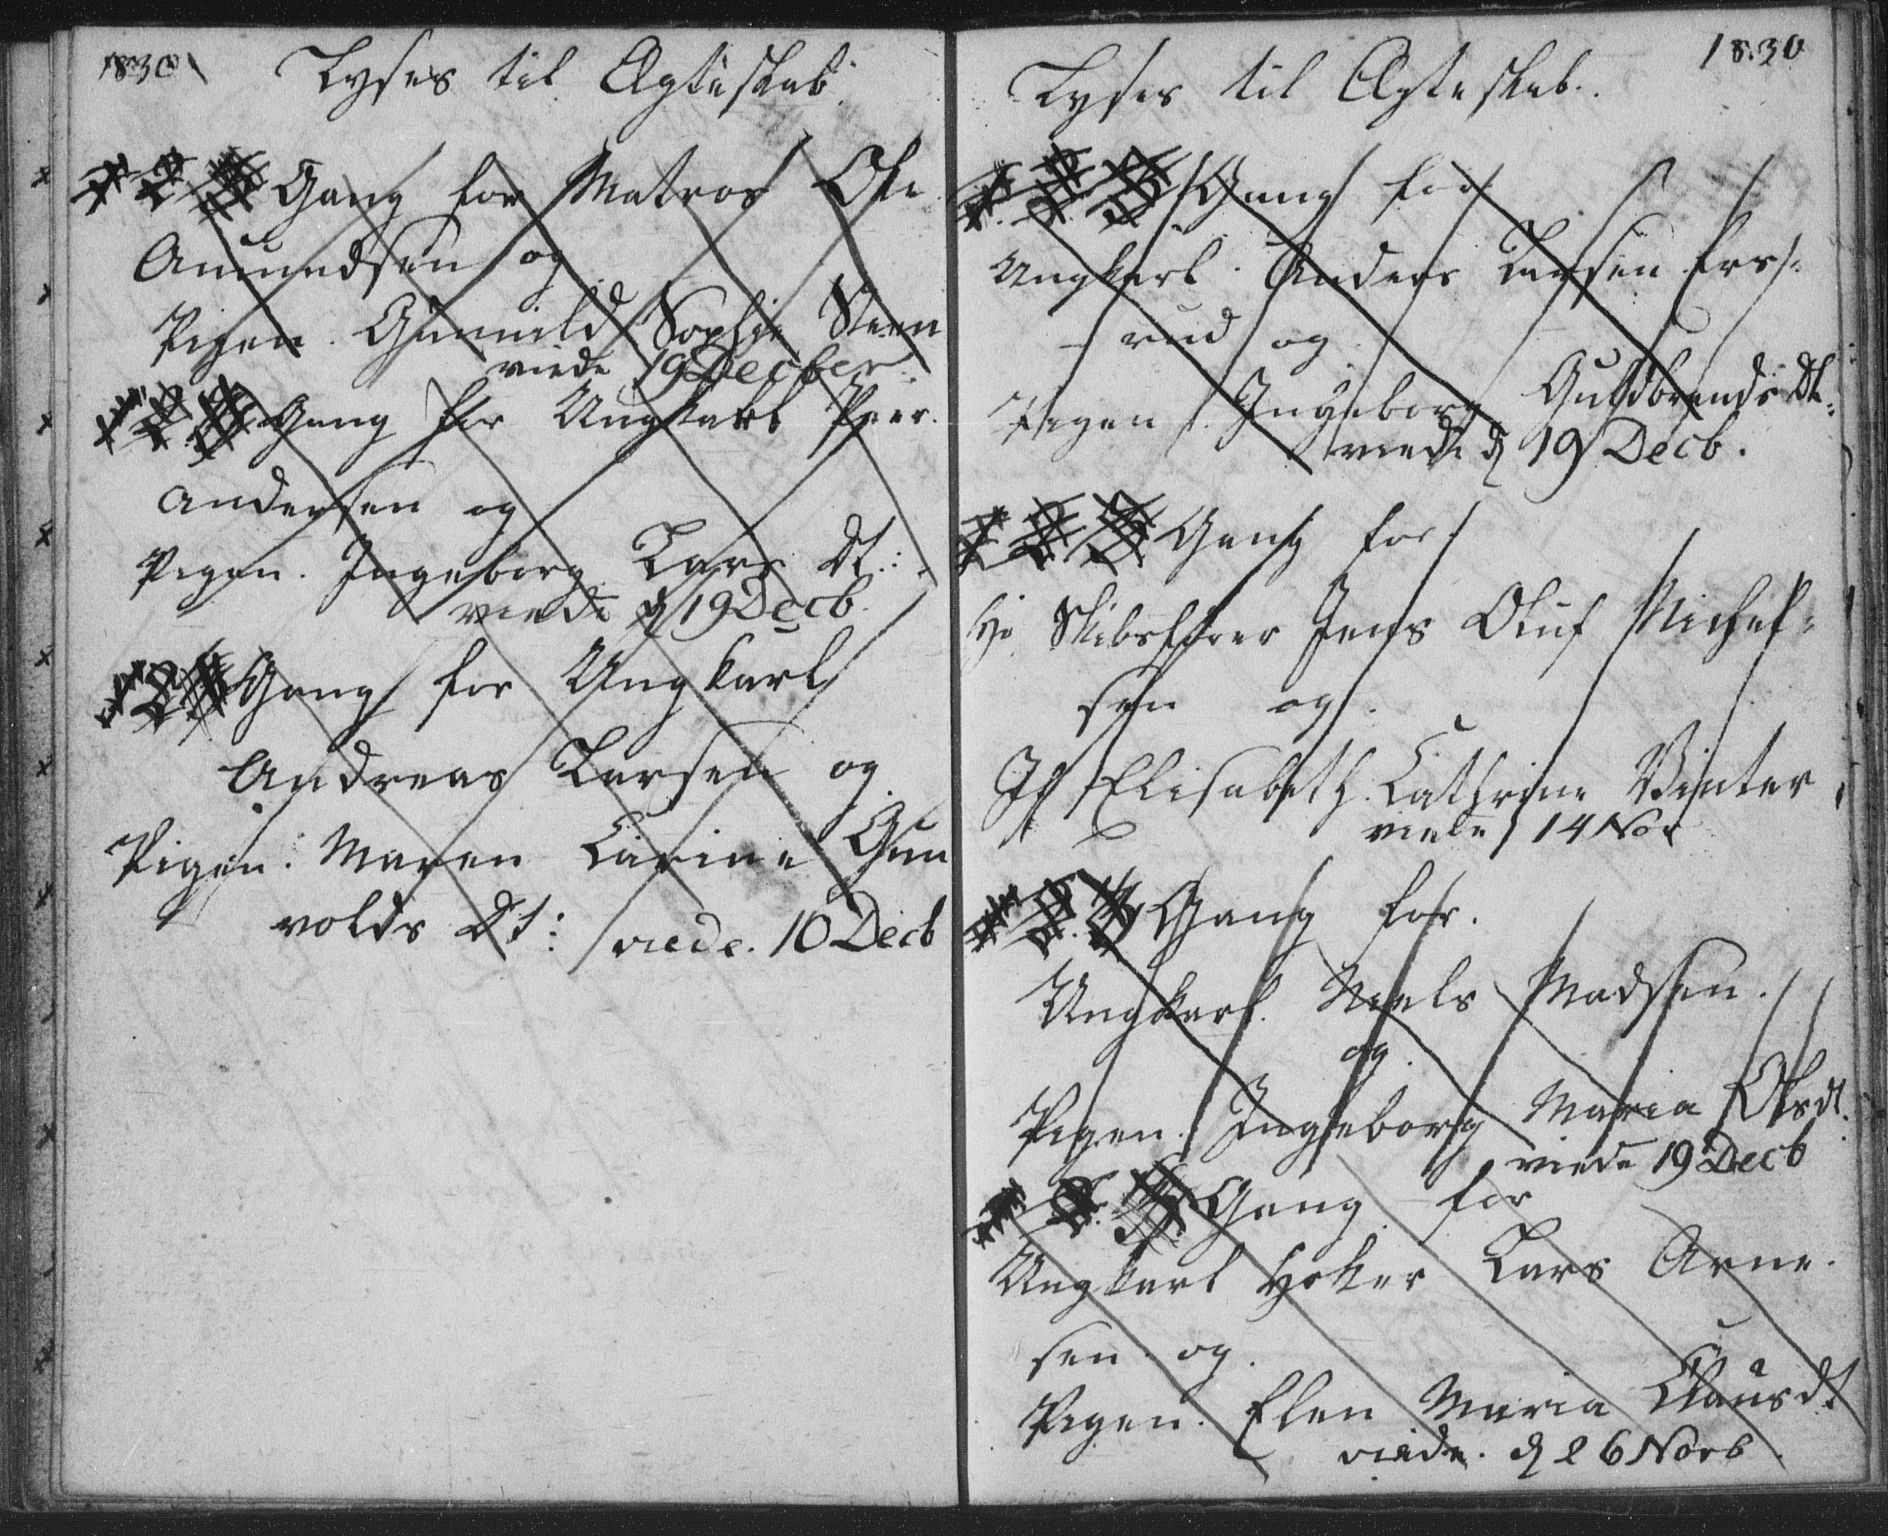 1830
Lyses til Ægteskab
1 2 3 Gang for Matros Ole
Amundsen og
Pigen Gunnild Sophie Steen
viede 19 Decber
1 2 3 Gang for Ungkarl Peer
Andersen og
Pigen. Ingeborg Lars Dt:
viede d 19 Decb.
1 2 3 Gang for Ungkarl
Andreas Larsen og
Pigen. Maren Carine Gun
volds Dt: viede. 10 Decb
1830
Lyses til Ægteskab.
1. 2. 3 Gang for
Ungkarl Anders Larsen
rud og
Pigen Ingeborg Guldbrands Dt:
viede d 19 Decb.
1 2 3 Gang for
Hr Skibsfører Jens Oluf Michel=
sen og.
Jf Elisabeth Cathrine Winter
viede 14 Nov
1 2. 3 Gang for.
Ungkarl. Niels Madsen.
og.
Pigen. Ingeborg Maria Olsdt.
viede 19 Decb
1 2. 3. Gang for
Ungkarl Høker Lars Arne.
sen og.
Pigen. Elen Maria Clausdt
viede. d 26 Novb